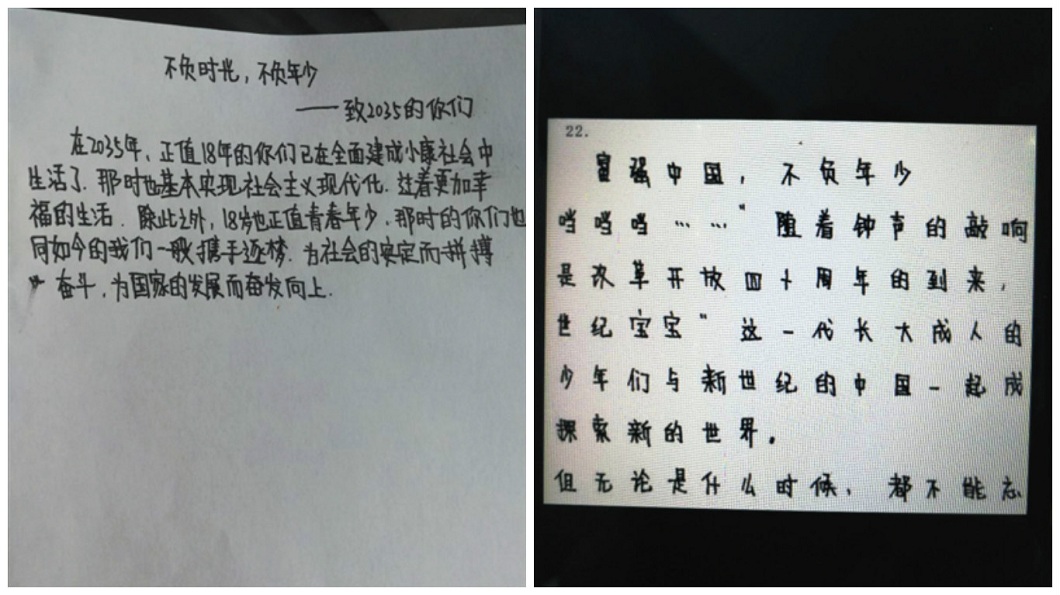 不负时光，不负年少
——致2035的你们
在2035年，正值18年的你们已在全面建成小康社会中
生活了．那时也基本实现社会主义现代化．过着更加幸
福的生活．除此之外，18岁也正值青春年少．那时的你们也
同如今的我们一般携手逐梦．为社会的安定而拼搏
奋斗，为国家的发展而奋发向上．
22.
富强中国，不负年少
当当当……"随着钟声的敲响
是改革开放四十周年的到来，
世纪宝宝"这一代长大成人的
少年们与新世纪的中国一起成
探索新的世界。
但无论是什么时候，都不能忘